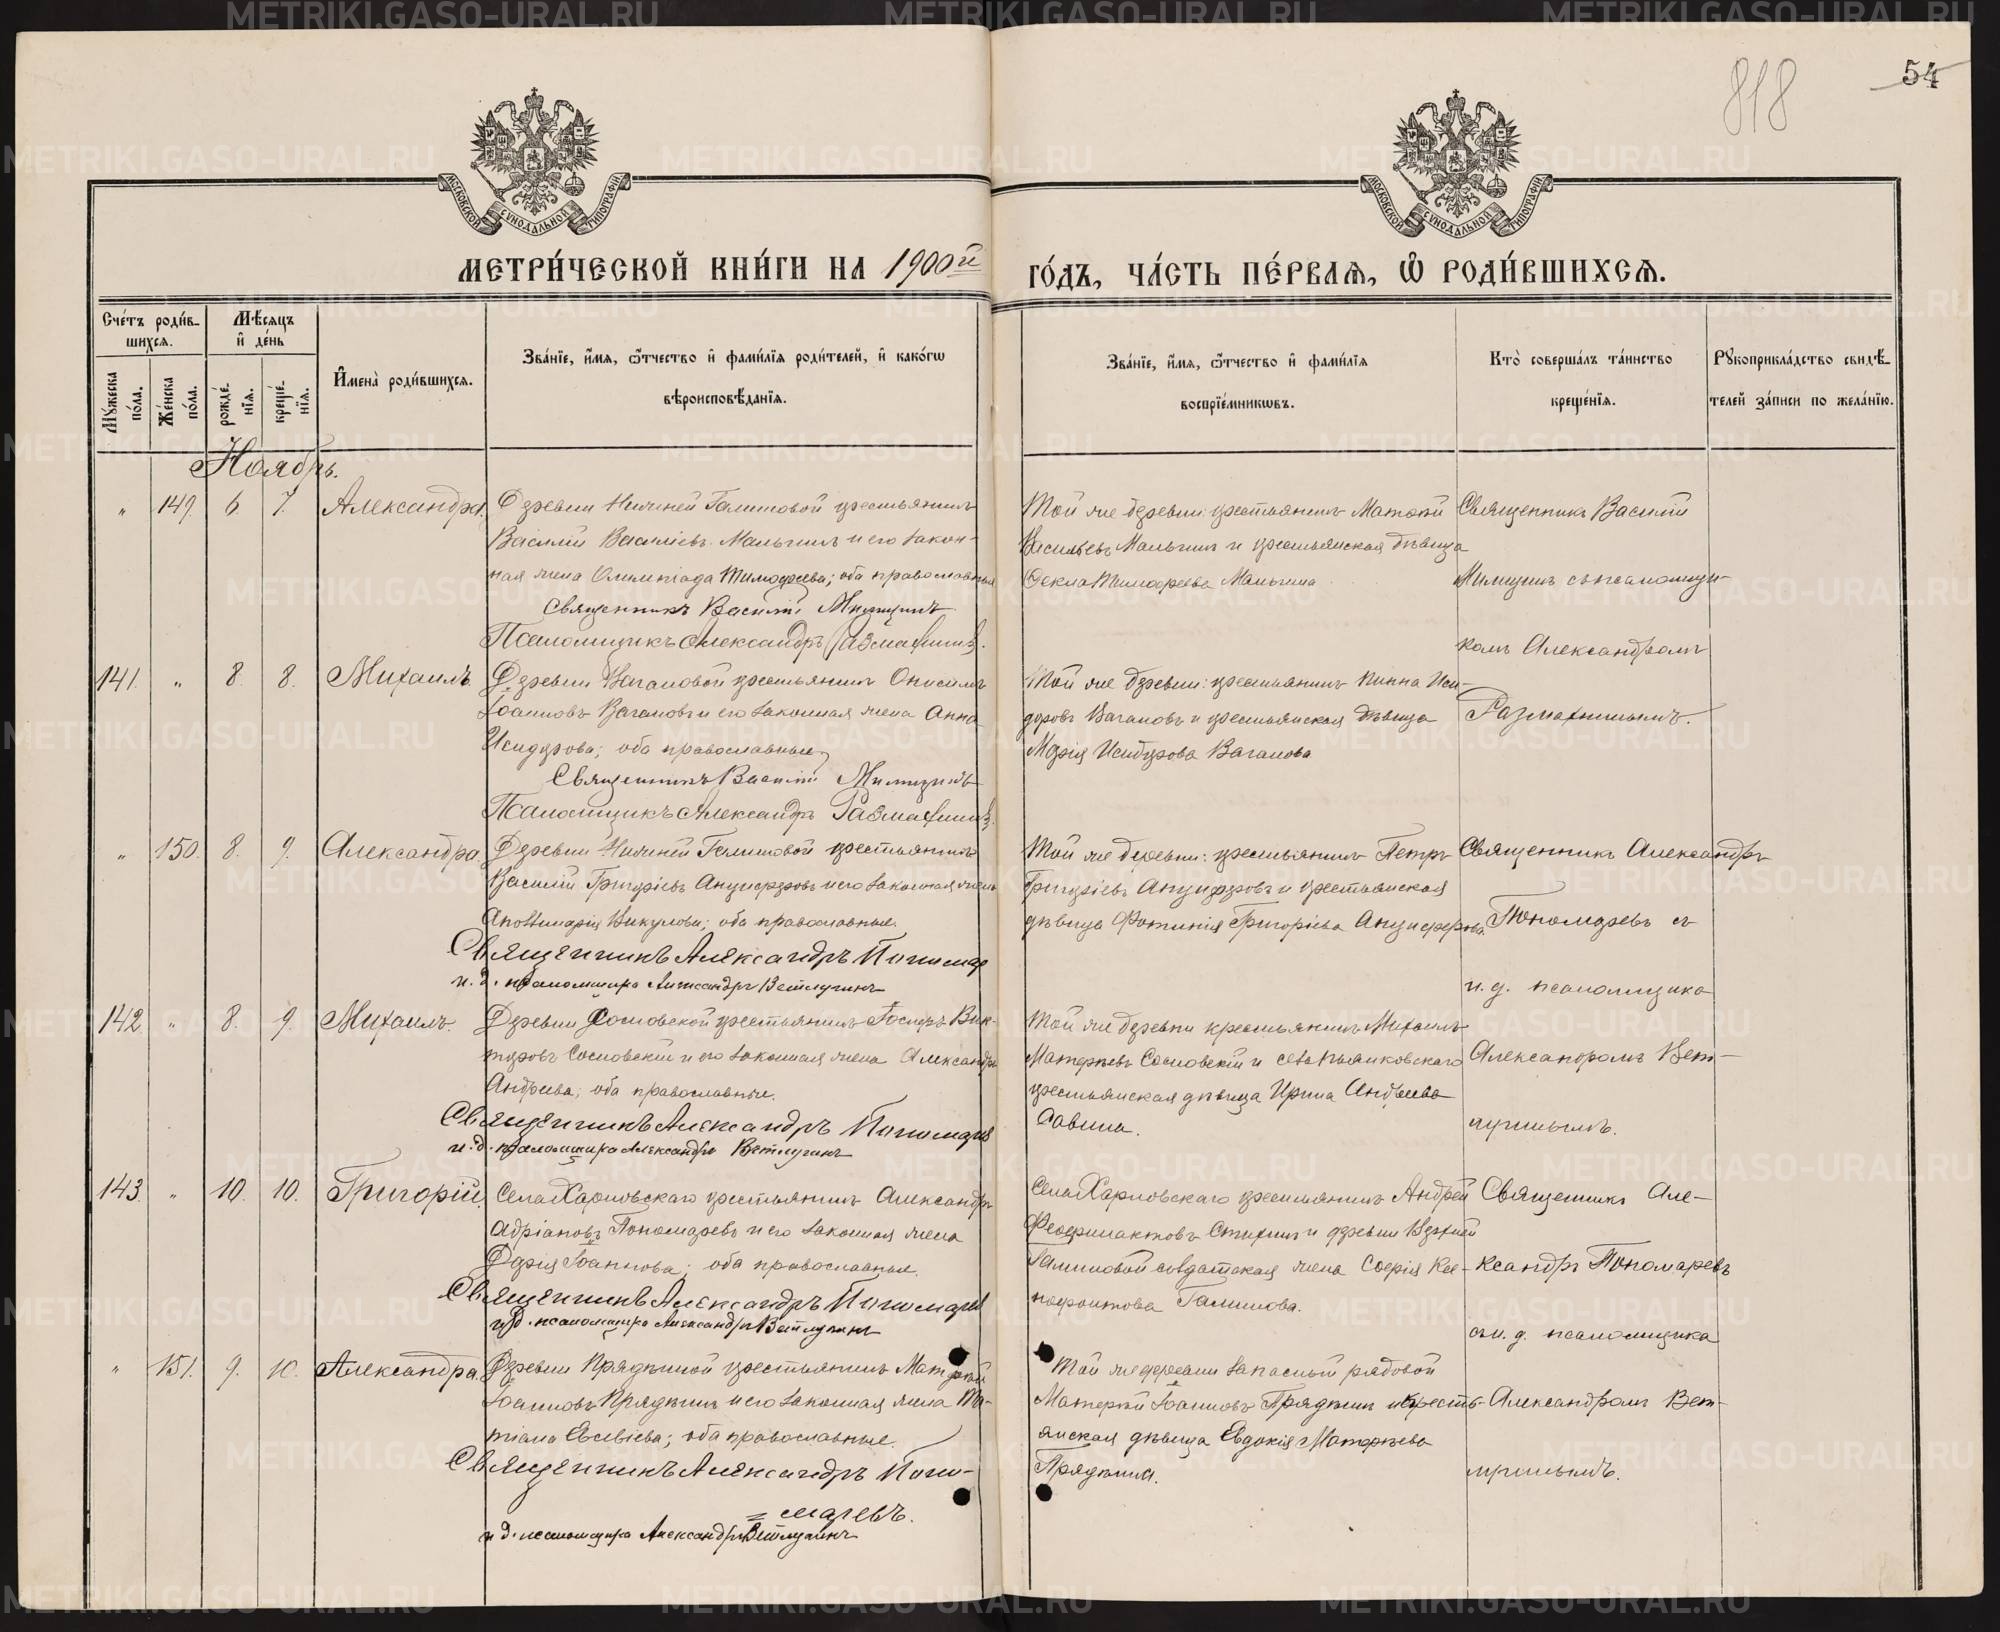 818
54
МОСКОВСКОЙ СУНОДАЛЬНОЙ ТИПОГРАФІИ
МОСКОВСКОЙ СУНОДАЛЬНОЙ ТИПОГРАФІИ
МЕТРИ́ЧЕСКОЙ КНИ́ГИ НА 1900й ГО́ДЪ, ЧА́СТЬ ПЕ́РВАѦ, Ѡ҆ РОДИ́ВШИХСѦ.
Сче́тъ роди́в-
шихсѧ.
Мꙋжеска по́ла.
Же́нска по́ла.
Мѣ́сѧцъ
и҆ де́нь
рожде́-
нїѧ.
креще́-
нїѧ.
И҆мена̀ роди́вшихсѧ.
Зва́нїе, и҆́мѧ, ѻ҆́тчество и҆ фами́лїѧ роди́телей, и҆ како́гѡ
вѣроисповѣ́данїѧ.
Зва́нїе, и҆́мѧ, ѻ҆́тчество и҆ фами́лїѧ
воспрїе́мникѡвъ.
Кто̀ соверша́лъ та́инство
креще́нїѧ.
Рꙋкоприкла́дство свидѣ́-
телей за́писи по жела́нїю.
Ноябрь.
„ 149. 6. 7. Александра.
Деревни Нижней Галишовой крестьянинъ
Василій Василіевъ Мальгинъ и его закон-
ная жена Олимпіада Тимофеева; оба православные
Священникъ Василій Милицинъ
Псаломщикъ Александръ Размахнинъ.
Той же деревни: крестьянинъ Матѳей
Васильевъ Мальгинъ и крестьянская дѣвица
Ѳекла Тимофеева Мальгина
Священникъ Василій
Милицинъ съ псаломщи-
комъ Александромъ
Размахнинымъ.
141. „ 8. 8. Михаилъ.
Деревни Вагановой крестьянинъ Онисимъ
Іоанновъ Вагановъ и его законная жена Анна
Исидорова; оба православные
Священникъ Василій Милицинъ
Псаломщикъ Александръ Размахнинъ.
Той же деревни: крестьянинъ Пинна Иси-
доровъ Вагановъ и крестьянская дѣвица
Марія Исидорова Ваганова
„ 150. 8. 9. Александра.
Деревни Нижней Галишовой крестьянинъ
Василій Григоріевъ Анциферовъ и его законная жена
Аполлинарія Викулова; оба православные.
Священникъ Александръ Пономарев
и. д. псаломщика Александръ Ветлугинъ
Той же деревни: крестьянинъ Петръ
Григоріевъ Анциферовъ и крестьянская
дѣвица Фотинія Григоріева Анциферова.
Священникъ Александръ
Пономаревъ съ
и. д. псаломщика
Александромъ Вет-
лугинымъ.
142. „ 8. 9. Михаилъ.
Деревни Сосновской крестьянинъ Вик-
торовъ Сосновскій и его законная жена Александра
Андреева; оба православные.
Священникъ Александръ Пономарев
и. д. псаломщика Александръ Ветлугинъ
Той же деревни крестьянинъ Михаилъ
Матѳеевъ Сосновскій и села Пьянковскаго
крестьянская дѣвица Ирина Андреева
Савина.
143. „ 10. 10. Григорій.
Села Харловскаго крестьянинъ Александръ
Адріановъ Пономаревъ и его законная жена
Дарія Іоаннова; оба православные.
Священникъ Александръ Пономарев
и. д. псаломщика Александръ Ветлугинъ
Села Харловскаго крестьянинъ Андрей
Феофилактовъ Стихинъ и деревни Верхней
Галишовой солдатская жена Софія Ксе-
нофонтова Галишова.
Священникъ Але-
ксандръ Пономаревъ
съ и. д. псаломщика
Александромъ Вет-
лугинымъ.
„ 151. 9. 10. Александра.
Деревни Прядѣиной крестьянинъ Матѳей
Іоанновъ Прядѣинъ и его законная жена Та-
тіана Евсевіева; оба православные.
Священникъ Александръ Поно-
маревъ.
и д. псаломщика Александръ Ветлугинъ
Той же деревни запасный рядовой
Матѳей Іоанновъ Прядѣинъ и кресть-
янская дѣвица Евдокія Матѳеева
Прядѣина.